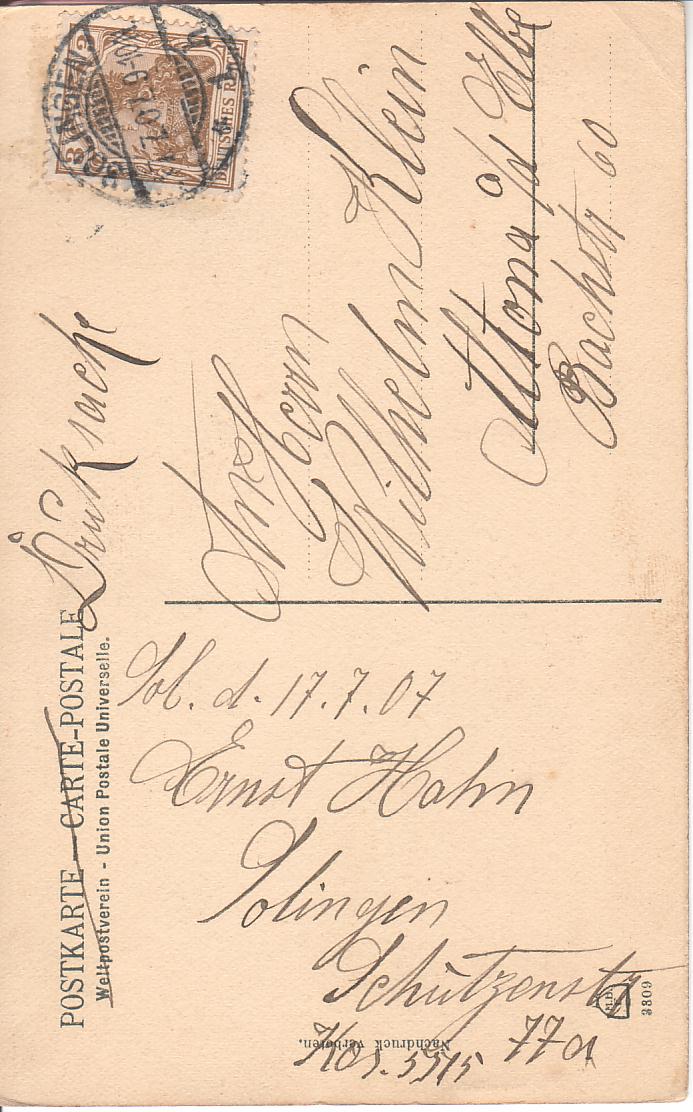 POSTKARTE — CARTE-POSTALE
Weltpostverein - Union Postale Universelle.
Drucksache
3 DEUTSCHES REICH 3
SOLINGEN
17.7.07. 9-10V.
Sol. d. 17.7.07
Ernst Hahn
Solingen
Schützenstr
77a
Kos. 5515
An
Herrn
Wilhelm Klein
Altona i/d Elbe
Bachstr 60
Nachdruck verboten.
3809